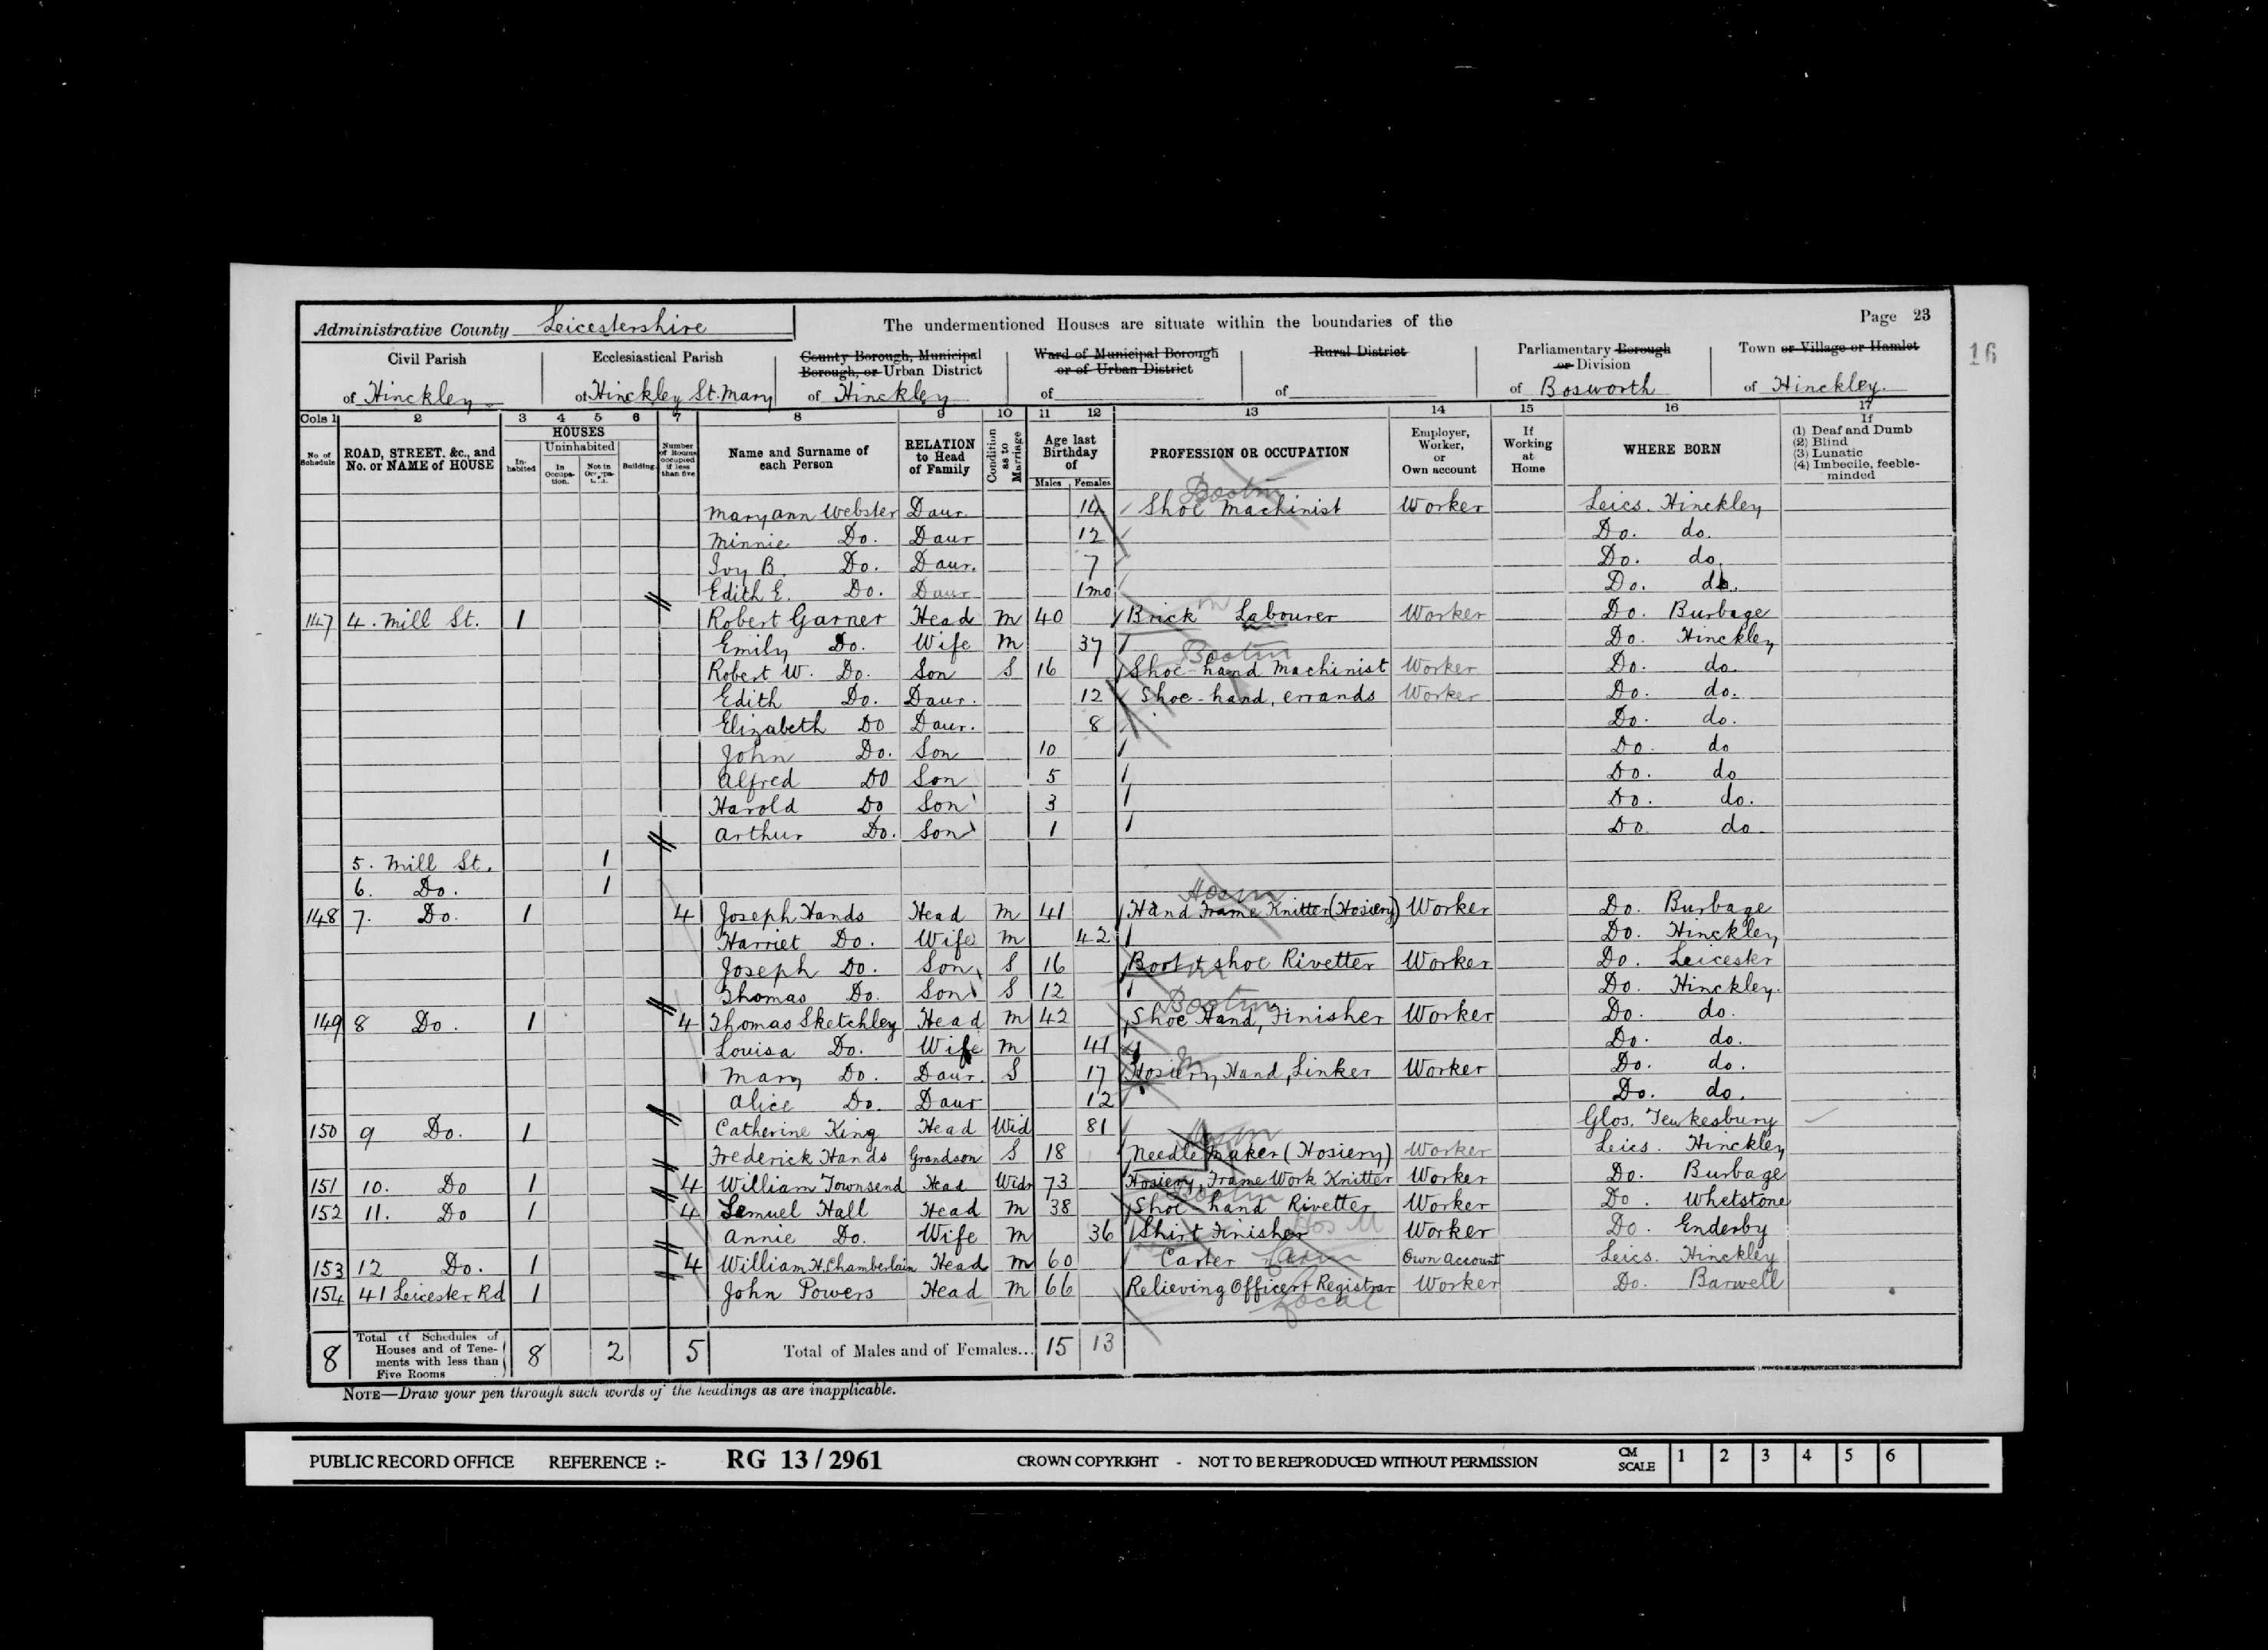 Administrative County Leicestershire The undermentioned Houses are situate within the boundaries of the Page 23
16
Civil Parish of Hinckley
Ecclesiastical Parish of Hinckley St. Mary
County Borough, Municipal Borough, or Urban District of Hinckley
Ward of Municipal Borough or of Urban District of
Rural District of
Parliamentary Borough or Division of Bosworth
Town or Village or Hamlet of Hinckley.
Cols 1 2 3 4 5 6 7 8 9 10 11 12 13 14 15 16 17
No. of Schedule
ROAD, STREET, &c., and No. or NAME of HOUSE
HOUSES
Inhabited
Uninhabited
In Occupation.
Not in Occupation.
Building.
Number of Rooms occupied if less than five
Name and Surname of each Person
RELATION to Head of Family
Condition as to Marriage
Age last Birthday of
Males Females
PROFESSION OR OCCUPATION
Employer, Worker, or Own account
If Working at Home
WHERE BORN
If
(1) Deaf and Dumb
(2) Blind
(3) Lunatic
(4) Imbecile, feeble-minded
Mary Ann Webster Daur 14 Shoe Machinist Worker Leics. Hinckley
Minnie Do. Daur 12 Do. do.
Ivy B. Do. Daur. 7 Do. do.
Edith E. Do. Daur 1 mo Do. do.
147 4. Mill St. 1 Robert Garner Head M 40 Brick Labourer Worker Do. Burbage
Emily Do. Wife M 37 Do. Hinckley
Robert W. Do. Son S 16 Shoe-hand Machinist Worker Do. do.
Edith Do. Daur. 12 Shoe-hand, errands Worker Do. do.
Elizabeth Do Daur. 8 Do. do.
John Do. Son 10 Do. do
Alfred Do Son 5 Do. do
Harold Do Son 3 Do. do.
Arthur Do. Son 1 Do do.
5. Mill St. 1
6. Do. 1
148 7. Do. 1 4 Joseph Hands Head M 41 Hand Frame Knitter (Hosiery) Worker Do. Burbage
Harriet Do. Wife M 42 Do. Hinckley
Joseph Do. Son S 16 Boot & shoe Rivetter Worker Do. Leicester
Thomas Do. Son S 12 Do. Hinckley.
149 8 Do. 1 4 Thomas Sketchley Head M 42 Shoe Hand, Finisher Worker Do. do.
Louisa Do. Wife M 41 Do. do.
Mary Do. Daur. S 17 Hosiery Hand, Linker Worker Do. do.
Alice Do. Daur 12 Do. do.
150 9 Do. 1 Catherine King Head Wid 81 Glos. Tewkesbury
Frederick Hands Grandson S 18 Needle Maker (Hosiery) Worker Leics. Hinckley
151 10. Do 1 4 William Townsend Head Widr 73 Hosiery, Frame Work Knitter Worker Do. Burbage
152 11. Do 1 4 Samuel Hall Head M 38 Shoe hand Rivetter Worker Do. Whetstone
Annie Do. Wife M 36 Shirt Finisher Hos M Worker Do. Enderby
153 12 Do. 1 4 William H. Chamberlain Head M 60 Carter Own Account Leics. Hinckley
154 41 Leicester Rd 1 John Powers Head M 66 Relieving Officer & Registrar Worker Do. Barwell
Local
8 Total of Schedules of Houses and of Tenements with less than Five Rooms 8 2 5 Total of Males and of Females... 15 13
NOTE—Draw your pen through such words of the headings as are inapplicable.
PUBLIC RECORD OFFICE REFERENCE :- RG 13 / 2961 CROWN COPYRIGHT - NOT TO BE REPRODUCED WITHOUT PERMISSION CM SCALE 1 2 3 4 5 6